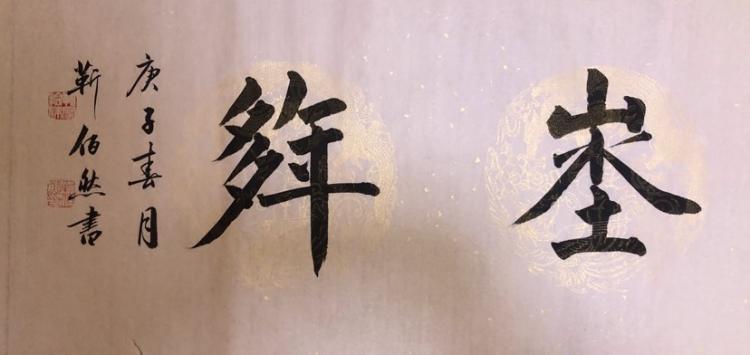 埊
庚子春月
靳佰然書